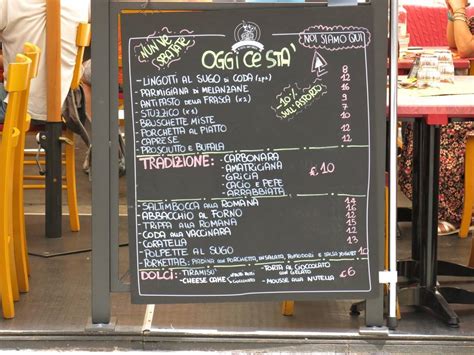 NUN VE
SBAJATE
OGGI CE STA'
NOI SIAMO QUI
-10%
SULL'ASPORTO
- LINGOTTI AL SUGO DI CODA 8
- PARMIGIANA DI MELANZANE 12
- ANTIPASTO DELLA FRASCA 16
- STUZZICO 9
- BRUSCHETTE MISTE 7
- PORCHETTA AL PIATTO 10
- CAPRESE 12
- PROSCIUTTO E BUFALA 12
TRADIZIONE: - CARBONARA
- AMATRICIANA
- GRICIA
- CACIO E PEPE
- ARRABBIATA
€ 10
- SALTIMBOCCA ALLA ROMANA 14
- ABBACCHIO AL FORNO 16
- TRIPPA ALLA ROMANA 12
- CODA ALLA VACCINARA 14
- CORATELLA 13
- POLPETTE AL SUGO 12
- PORKETTAB: PIADINA CON PORCHETTA, INSALATA, POMODORI E SALSA YOGURT 10
DOLCI: - TIRAMISU' - TORTA AL CIOCCOLATO CON GELATO
- CHEESE CAKE - MOUSSE ALLA NUTELLA
€ 6